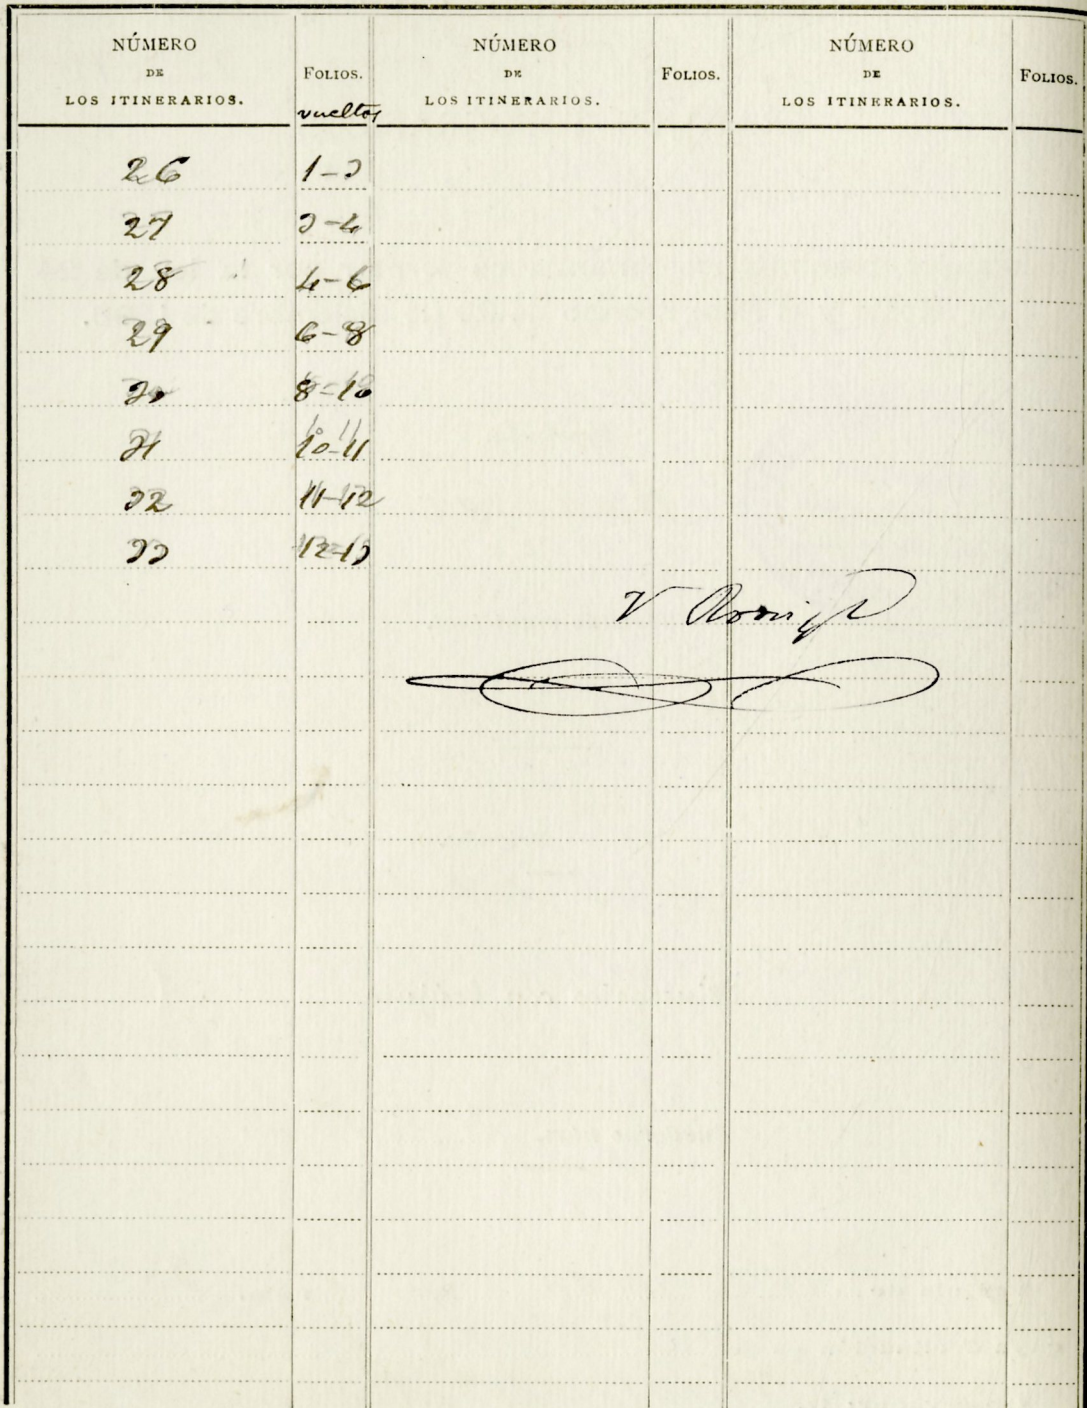 NÚMERO DE LOS ITINERARIOS. FOLIOS. NÚMERO DE LOS ITINERARIOS. FOLIOS. NÚMERO DE LOS ITINERARIOS. FOLIOS.
vueltos
26 1-3
27 3-4
28 4-6
29 6-8
30 8-10
31 10-11
32 11-12
33 12-13
V